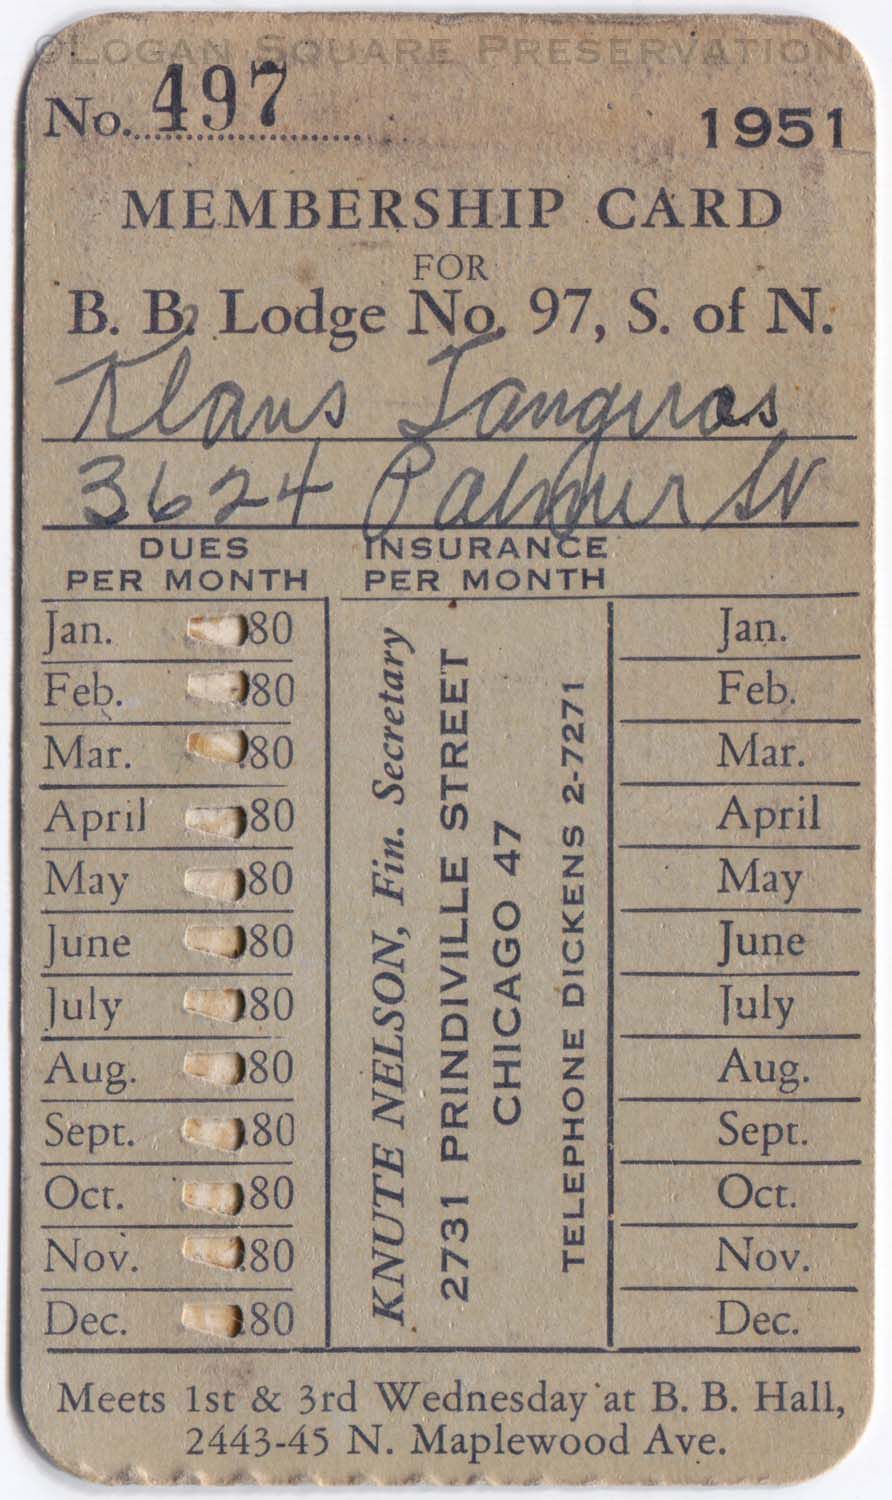 ©Logan Square Preservation
No. 497
1951
MEMBERSHIP CARD
FOR
B. B. Lodge No. 97, S. of N.
Klaus
3624 Palmer
DUES PER MONTH
INSURANCE PER MONTH
Jan. 80 Jan.
Feb. .80 Feb.
Mar. .80 Mar.
April .80 April
May .80 May
June .80 June
July .80 July
Aug. 80 Aug.
Sept. .80 Sept.
Oct. .80 Oct.
Nov. .80 Nov.
Dec. .80 Dec.
KNUTE NELSON, Fin. Secretary
2731 PRINDIVILLE STREET
CHICAGO 47
TELEPHONE DICKENS 2-7271
Meets 1st & 3rd Wednesday at B. B. Hall,
2443-45 N. Maplewood Ave.